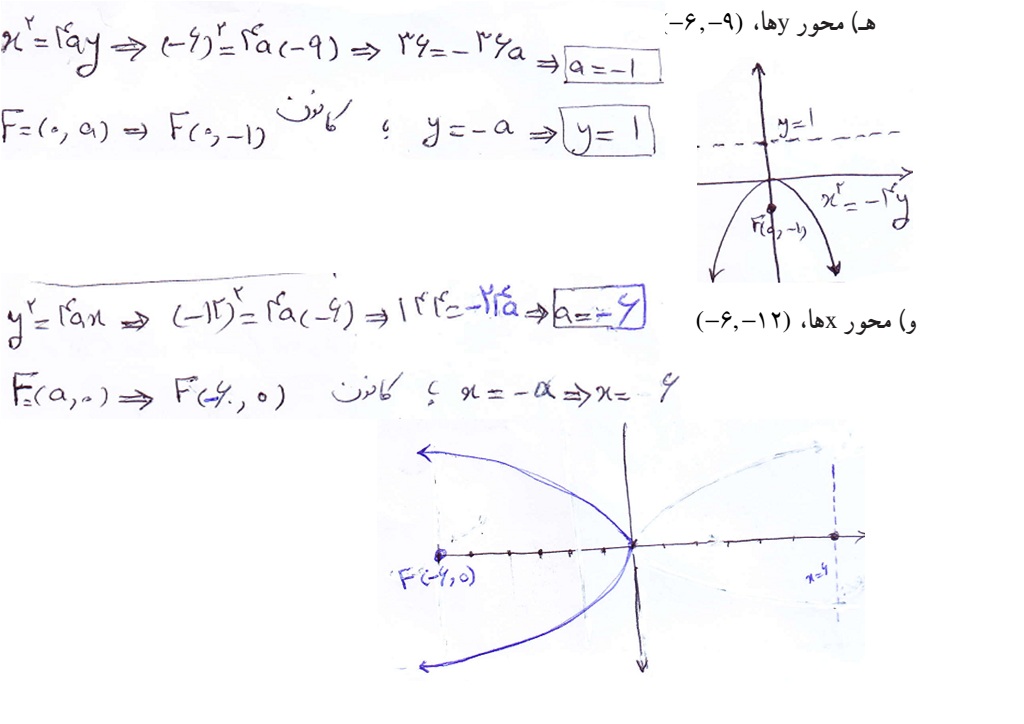 هـ) محور yها، (−۶,−۹)
x^۲=۴ay ⇒ (−۶)^۲=۴a(−۹) ⇒ ۳۶=−۳۶a ⇒ a=−۱
F=(۰,a) ⇒ F(۰,−۱) کانون ; y=−a ⇒ y=۱
y=۱
x^۲=−۴y
F(۰,−۱)
و) محور xها، (−۶,−۱۲)
y^۲=۴ax ⇒ (−۱۲)^۲=۴a(−۶) ⇒ ۱۴۴=−۲۴a ⇒ a=−۶
F=(a,۰) ⇒ F(−۶,۰) کانون ; x=−a ⇒ x=۶
F(−۶,۰)
x=۶